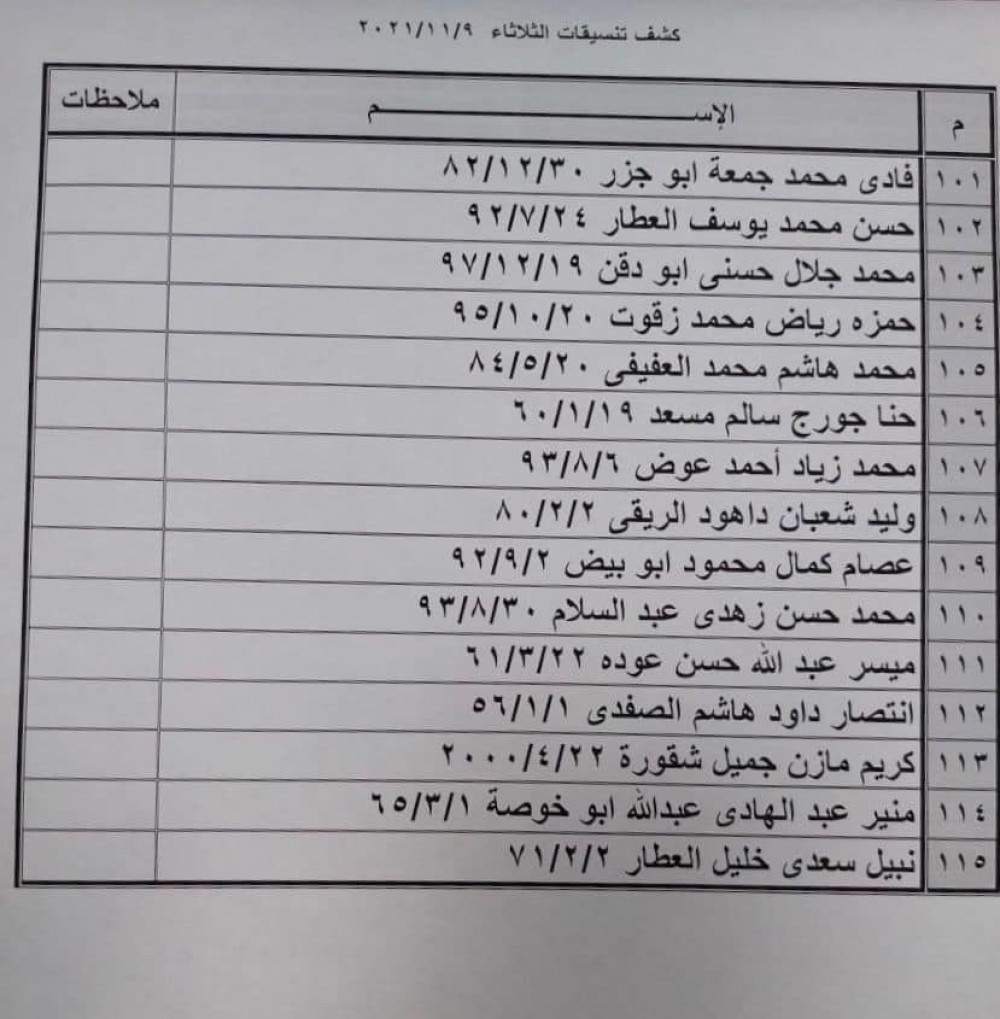 كشف تنسيقات الثلاثاء ٢٠٢١/١١/٩
م الإســـــــــم ملاحظات
١٠١ فادى محمد جمعة ابو جزر ٨٢/١٢/٣٠
١٠٢ حسن محمد يوسف العطار ٩٢/٧/٢٤
١٠٣ محمد جلال حسنى ابو دقن ٩٧/١٢/١٩
١٠٤ حمزه رياض محمد زقوت ٩٥/١٠/٢٠
١٠٥ محمد هاشم محمد العفيفى ٨٤/٥/٢٠
١٠٦ حنا جورج سالم مسعد ٦٠/١/١٩
١٠٧ محمد زياد أحمد عوض ٩٣/٨/٦
١٠٨ وليد شعبان داهود الريقى ٨٠/٢/٢
١٠٩ عصام كمال محمود ابو بيض ٩٢/٩/٢
١١٠ محمد حسن زهدى عبد السلام ٩٣/٨/٣٠
١١١ ميسر عبد الله حسن عوده ٦١/٣/٢٢
١١٢ انتصار داود هاشم الصفدى ٥٦/١/١
١١٣ كريم مازن جميل شقورة ٢٠٠٠/٤/٢٢
١١٤ منير عبد الهادى عبدالله ابو خوصة ٦٥/٣/١
١١٥ نبيل سعدى خليل العطار ٧١/٢/٢